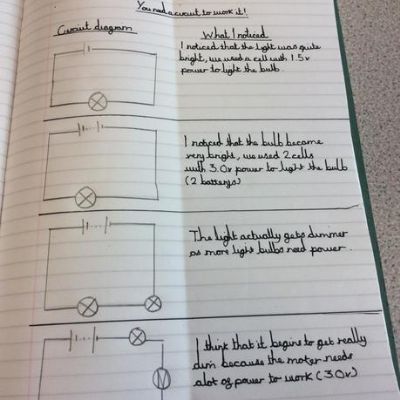 You need a circuit to work it!
Circuit diagram
What I noticed
I noticed that the light was quite
bright, we used a cell with 1.5v
power to light the bulb.
I noticed that the bulb became
very bright, we used 2 cells
with 3.0v power to light the bulb
(2 batterys)
The light actually gets dimmer
as more light bulbs need power.
I think that it begins to get really
dim because the moter needs
alot of power to work (3.0v)
M